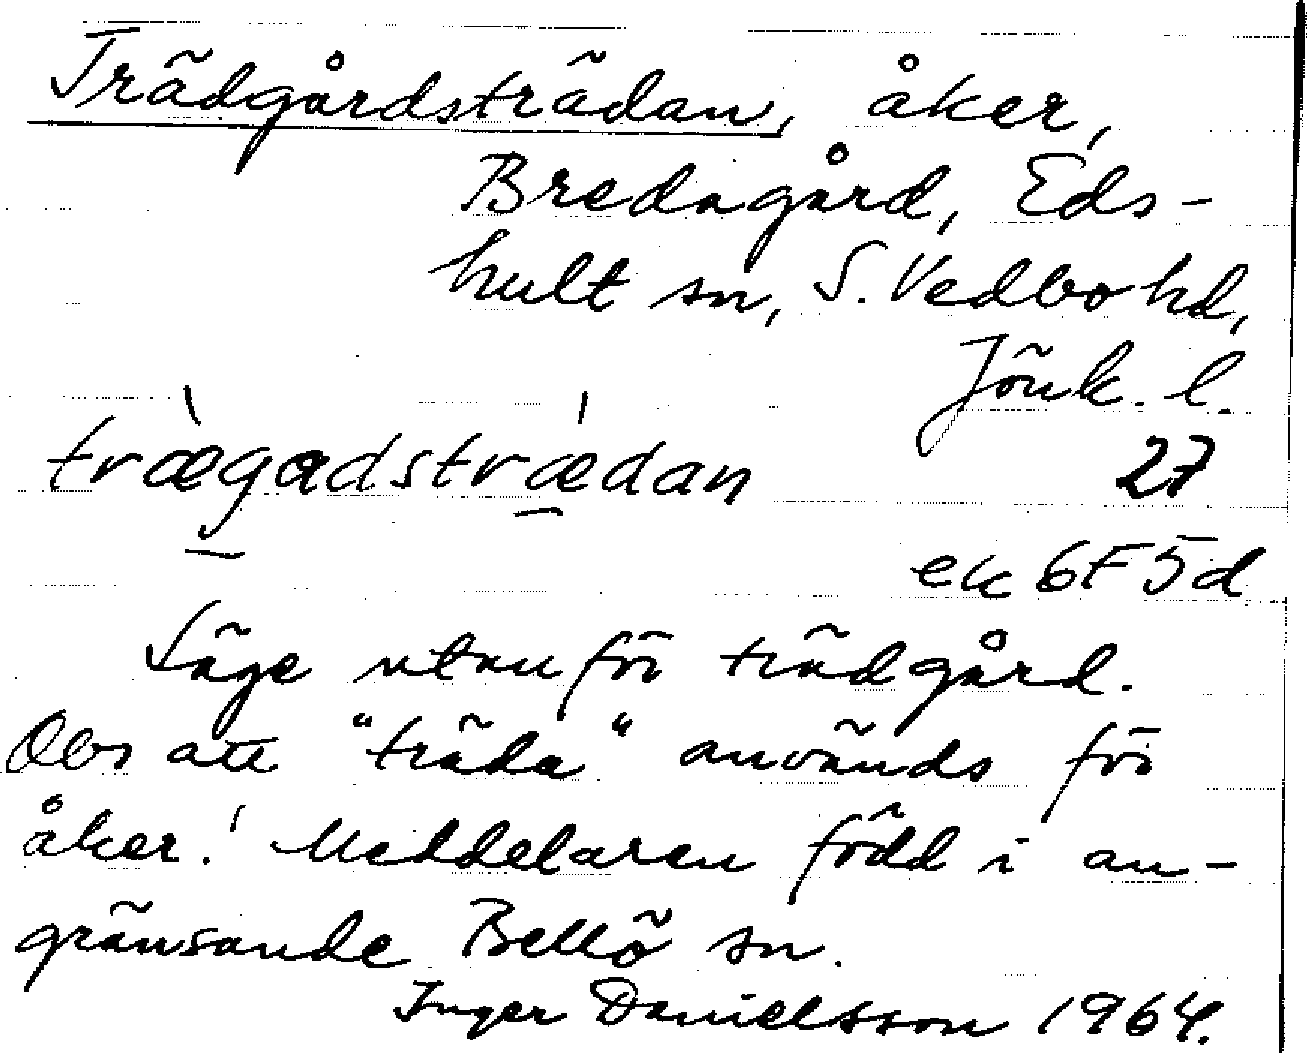 Trädgårdsträdan, åker,
Bredagård, Eds-
hult sn, S. Vedbo hd,
Jönk. l.
trægadstrædan 27
ek 6F5d
Läge utanför trädgård.
Obs att "träda" används för
åker! Meddelaren född i an-
gränsande Bellö sn.
Inger Danielsson 1964.